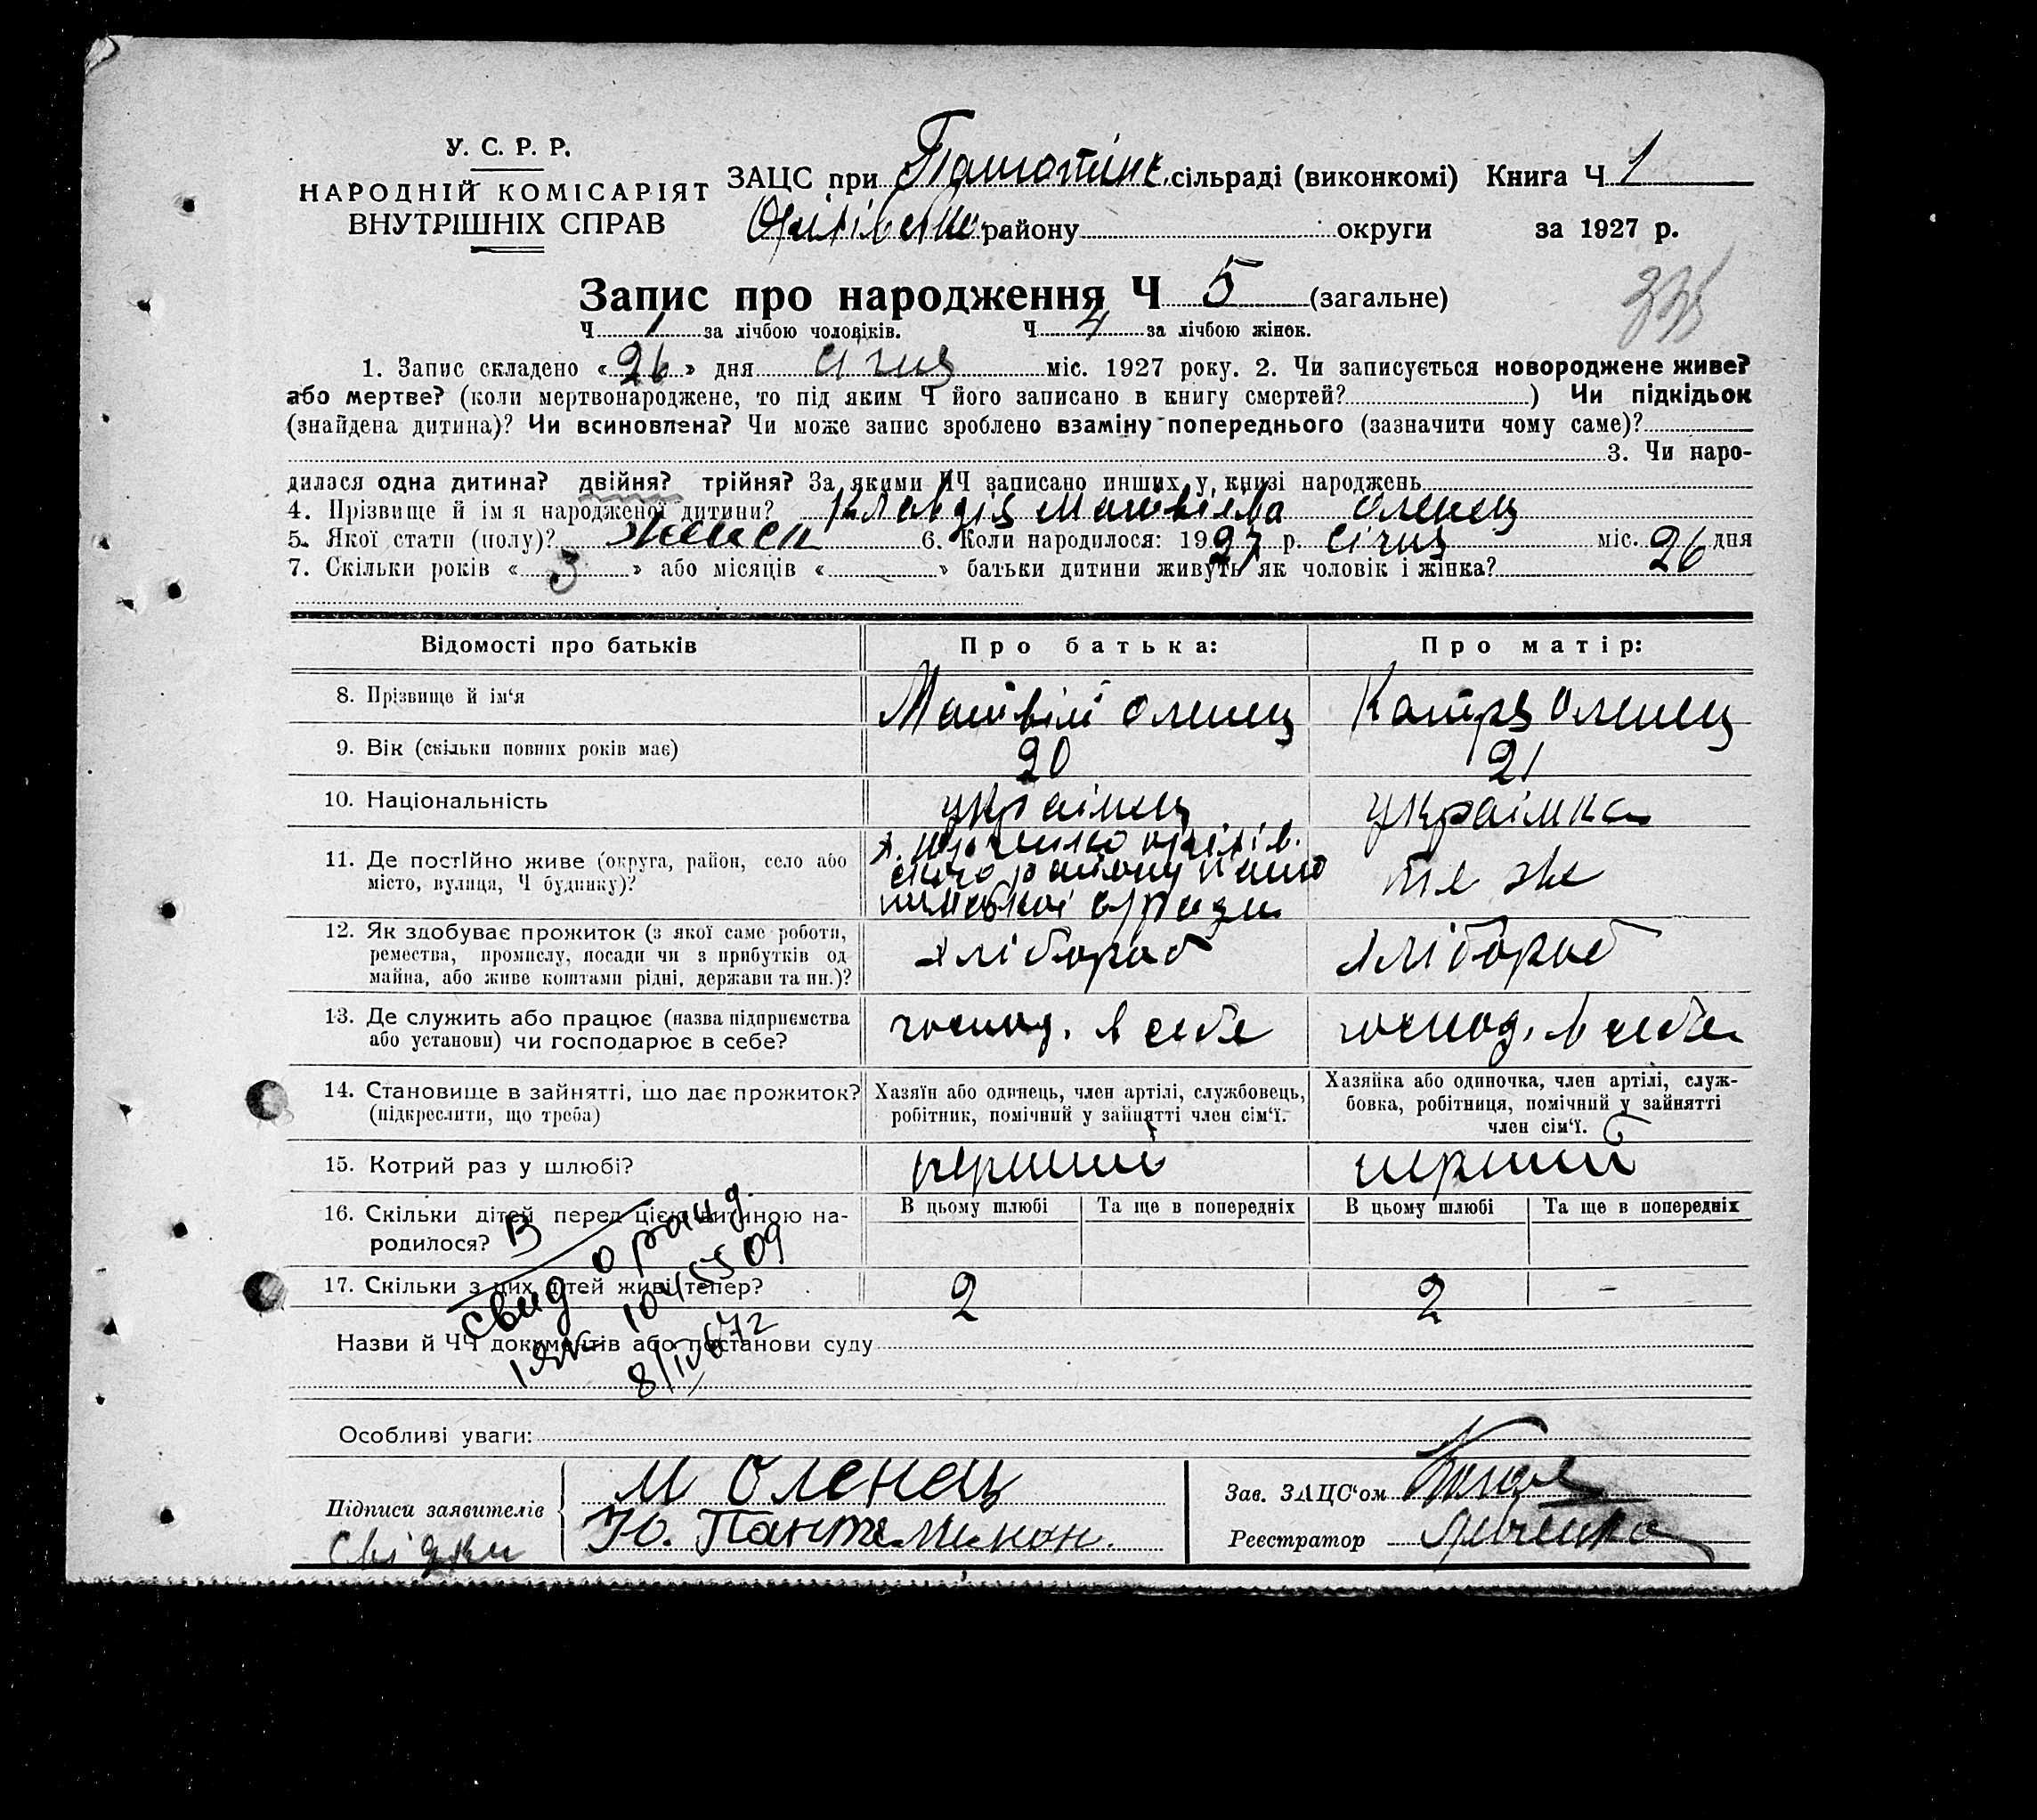 У. С. Р. Р.
НАРОДНІЙ КОМІСАРІЯТ
ВНУТРІШНІХ СПРАВ
ЗАЦС при сільраді (виконкомі) Книга Ч 1
району округи за 1927 р.
Запис про народження Ч 5 (загальне)
Ч 1 за лічбою чоловіків. Ч 4 за лічбою жінок.
1. Запис складено «26» дня січня міс. 1927 року. 2. Чи записується новороджене живе?
або мертве? (коли мертвонароджене, то під яким Ч його записано в книгу смертей? ) Чи підкідьок
(знайдена дитина)? Чи всиновлена? Чи може запис зроблено взаміну попереднього (зазначити чому саме)?
3. Чи наро-
дилася одна дитина? двійня? трійня? За якими ЧЧ записано инших у книзі народжень
4. Прізвище й ім я народженої дитини? Клавдія Матвіївна Оленец
5. Якої стати (полу)? женск 6. Коли народилося: 1927 р. січня міс. 26 дня
7. Скільки років « 3 » або місяців « » батьки дитини живуть як чоловік і жінка?
Відомості про батьків Про батька: Про матір:
8. Прізвище й ім'я Матвій Оленец Катря Оленец
9. Вік (скільки повних років має) 20 21
10. Національність українец українка
11. Де постійно живе (округа, район, село або
місто, вулиця, Ч будинку)? району те же
12. Як здобуває прожиток (з якої саме роботи,
ремества, промислу, посади чи з прибутків од
майна, або живе коштами рідні, держави та ин.)? хлібороб хлібороб
13. Де служить або працює (назва підприємства
або установи) чи господарює в себе? господ. в себе господ. в себе
14. Становище в зайнятті, що дає прожиток?
(підкреслити, що треба)
Хазяїн або одинець, член артілі, службовець,
робітник, помічний у зайнятті член сім'ї.
Хазяйка або одиночка, член артілі, служ-
бовка, робітниця, помічний у зайнятті
член сім'ї.
15. Котрий раз у шлюбі? перший перший
16. Скільки дітей перед цією дитиною на-
родилося?
В цьому шлюбі Та ще в попередніх В цьому шлюбі Та ще в попередніх
17. Скільки з цих дітей живі тепер? 2 2 -
Назви й ЧЧ документів або постанови суду
В
свид о рожд.
Особливі уваги:
Підписи заявителів М Оленец
Свідки Ю. Пантелимон.
Зав. ЗАЦС'ом
Реєстратор